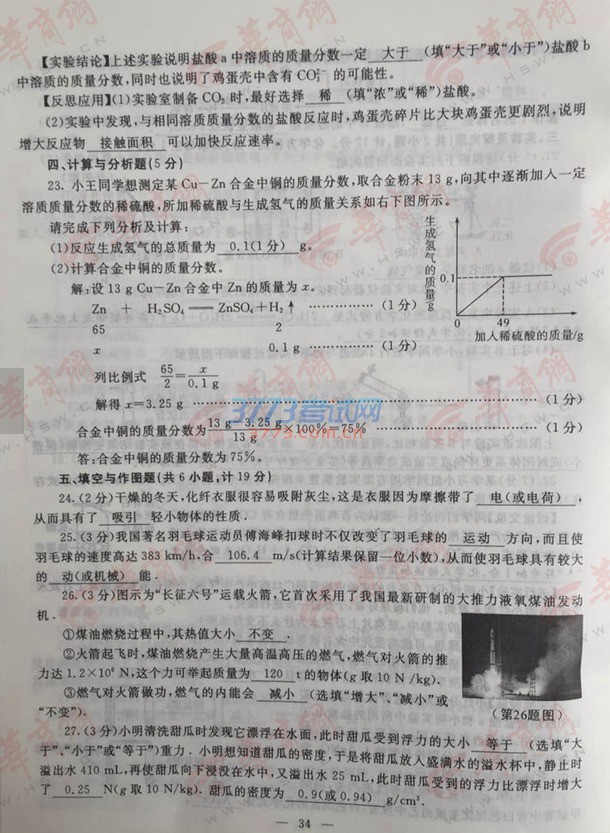 【实验结论】上述实验说明盐酸a中溶质的质量分数一定 大于 (填“大于”或“小于”)盐酸b
中溶质的质量分数,同时也说明了鸡蛋壳中含有CO₃²⁻的可能性。
【反思应用】(1)实验室制备CO₂时,最好选择 稀 (填“浓”或“稀”)盐酸。
(2)实验中发现,与相同溶质质量分数的盐酸反应时,鸡蛋壳碎片比大块鸡蛋壳更剧烈,说明
增大反应物 接触面积 可以加快反应速率。
四、计算与分析题(5分)
23. 小王同学想测定某Cu-Zn合金中铜的质量分数,取合金粉末13 g,向其中逐渐加入一定
溶质质量分数的稀硫酸,所加稀硫酸与生成氢气的质量关系如右下图所示。
请完成下列分析及计算:
(1)反应生成氢气的总质量为 0.1(1分) g。
(2)计算合金中铜的质量分数。
解:设13 g Cu-Zn合金中Zn的质量为x。
Zn + H₂SO₄ ═══ ZnSO₄+H₂↑ ……………(1分)
65 2
x 0.1 g ……………(1分)
列比例式 65/2 = x/0.1 g
解得 x=3.25 g ……………(1分)
合金中铜的质量分数为 (13 g-3.25 g)/13 g ×100%=75% ……………(1分)
答:合金中铜的质量分数为75%。
生成氢气的质量/g
0.1
0 49
加入稀硫酸的质量/g
五、填空与作图题(共6小题,计19分)
24.(2分)干燥的冬天,化纤衣服很容易吸附灰尘,这是衣服因为摩擦带了 电(或电荷) ,
从而具有了 吸引 轻小物体的性质.
25.(3分)我国著名羽毛球运动员傅海峰扣球时不仅改变了羽毛球的 运动 方向,而且使
羽毛球的速度高达383 km/h,合 106.4 m/s(计算结果保留一位小数),从而使羽毛球具有较大
的 动(或机械) 能.
26.(3分)图示为“长征六号”运载火箭,它首次采用了我国最新研制的大推力液氧煤油发动
机.
①煤油燃烧过程中,其热值大小 不变 .
②火箭起飞时,煤油燃烧产生大量高温高压的燃气,燃气对火箭的推
力达1.2×10⁶ N,这个力可举起质量为 120 t的物体(g取10 N/kg).
③燃气对火箭做功,燃气的内能会 减小 (选填“增大”、“减小”或
“不变”).
(第26题图)
27.(3分)小明清洗甜瓜时发现它漂浮在水面,此时甜瓜受到浮力的大小 等于 (选填“大
于”、“小于”或“等于”)重力.小明想知道甜瓜的密度,于是将甜瓜放入盛满水的溢水杯中,静止时
溢出水410 mL,再使甜瓜向下浸没在水中,又溢出水25 mL,此时甜瓜受到的浮力比漂浮时增大
了 0.25 N(g取10 N/kg).甜瓜的密度为 0.9(或0.94) g/cm³.
— 34 —
华商网
HSW.CN
3773考试网
3773.com.cn